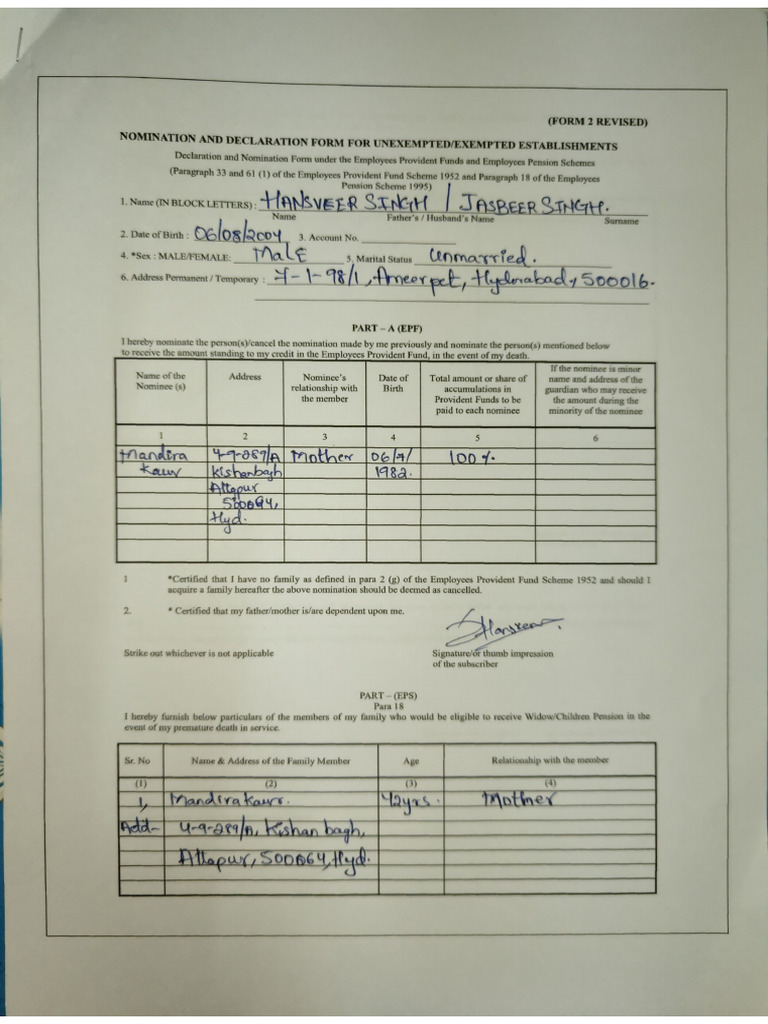 (FORM 2 REVISED)
NOMINATION AND DECLARATION FORM FOR UNEXEMPTED/EXEMPTED ESTABLISHMENTS
Declaration and Nomination Form under the Employees Provident Funds and Employees Pension Schemes
(Paragraph 33 and 61 (1) of the Employees Provident Fund Scheme 1952 and Paragraph 18 of the Employees
Pension Scheme 1995)
1. Name (IN BLOCK LETTERS) : HANSVEER SINGH / JASBEER SINGH.
Name Father's / Husband's Name Surname
2. Date of Birth : 06/08/2004 3. Account No.
4. *Sex : MALE/FEMALE: MaLE 5. Marital Status Unmarried.
6. Address Permanent / Temporary : 7-1-98/1, Ameerpet, Hyderabad, 500016.
PART – A (EPF)
I hereby nominate the person(s)/cancel the nomination made by me previously and nominate the person(s) mentioned below
to receive the amount standing to my credit in the Employees Provident Fund, in the event of my death.
Name of the Nominee (s) Address Nominee's relationship with the member Date of Birth Total amount or share of accumulations in Provident Funds to be paid to each nominee If the nominee is minor name and address of the guardian who may receive the amount during the minority of the nominee
1 2 3 4 5 6
Mandira 4-9-289/A Mother 06/7/ 100%.
Kaur Kishanbagh 1982.
Attapur
500064,
Hyd.
1 *Certified that I have no family as defined in para 2 (g) of the Employees Provident Fund Scheme 1952 and should I
acquire a family hereafter the above nomination should be deemed as cancelled.
2. * Certified that my father/mother is/are dependent upon me.
Strike out whichever is not applicable Signature/or thumb impression
of the subscriber
PART – (EPS)
Para 18
I hereby furnish below particulars of the members of my family who would be eligible to receive Widow/Children Pension in the
event of my premature death in service.
Sr. No Name & Address of the Family Member Age Relationship with the member
(1) (2) (3) (4)
1, Mandira Kaur. 42yrs. Mother
Add- 4-9-289/A, Kishan bagh,
Attapur, 500064, Hyd.